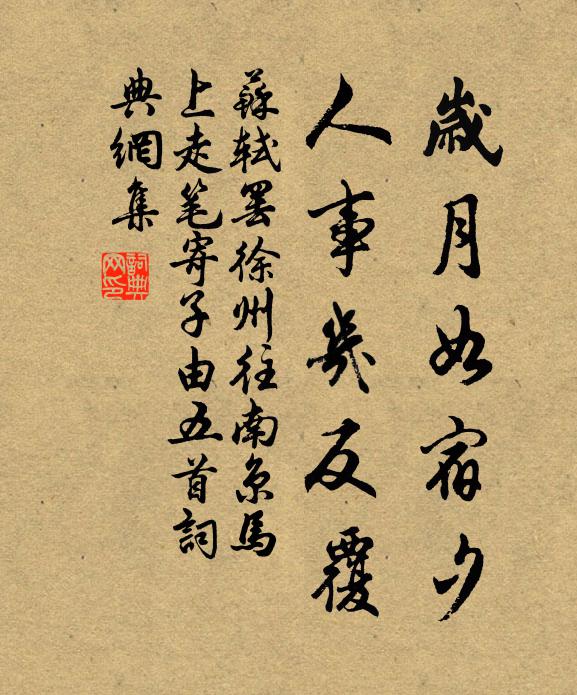 歲月如宿夕
人事幾反覆
蘇軾罷徐州往南京馬
上走笔寄子由五首詞
典網集
詞典
网印